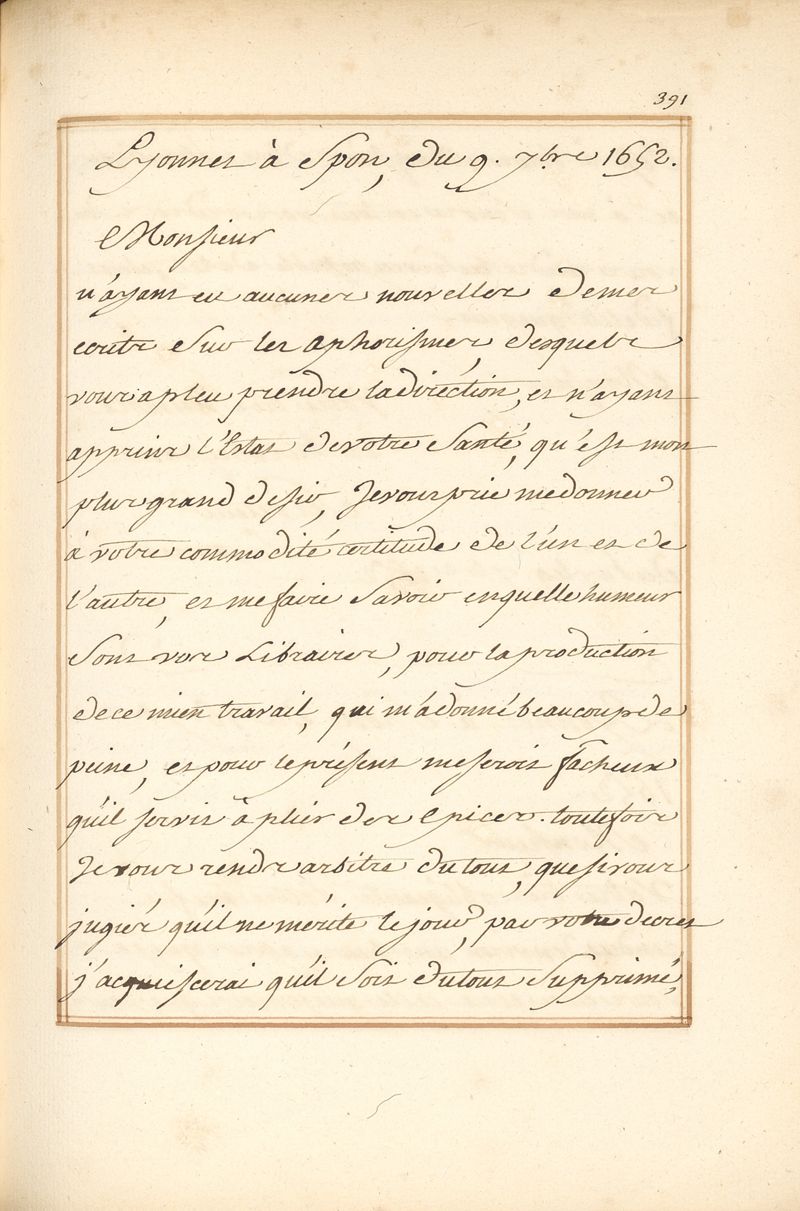 391
Lyonnet à Spon, du 9. 7bre 1652.
Monsieur
n'ayant eu aucunes nouvelles de mes
ecrits sur les aphorismes, desquels
vous a pleu prendre la diréction, et n'ayant
apprins l'Estat de votre Santé, qu'est mon
plus grand desir, Je vous prie me donner
à votre commodité certitude de l'un et de
l'autre, et me faire Savoir en quelle humeur
Sont vos Libraires, pour la production
de ce mien travail, qui m'a donné beaucoup de
peine, et pour le présent me serois fâcheux
qu'il servit à pliér des Epices. toutefois
Je vous rends arbitre du tout, que si vous
jugiér qu'il ne mérite le jour, par votre decret
j'acquiescerai qu'il Soit du tout Supprimé,